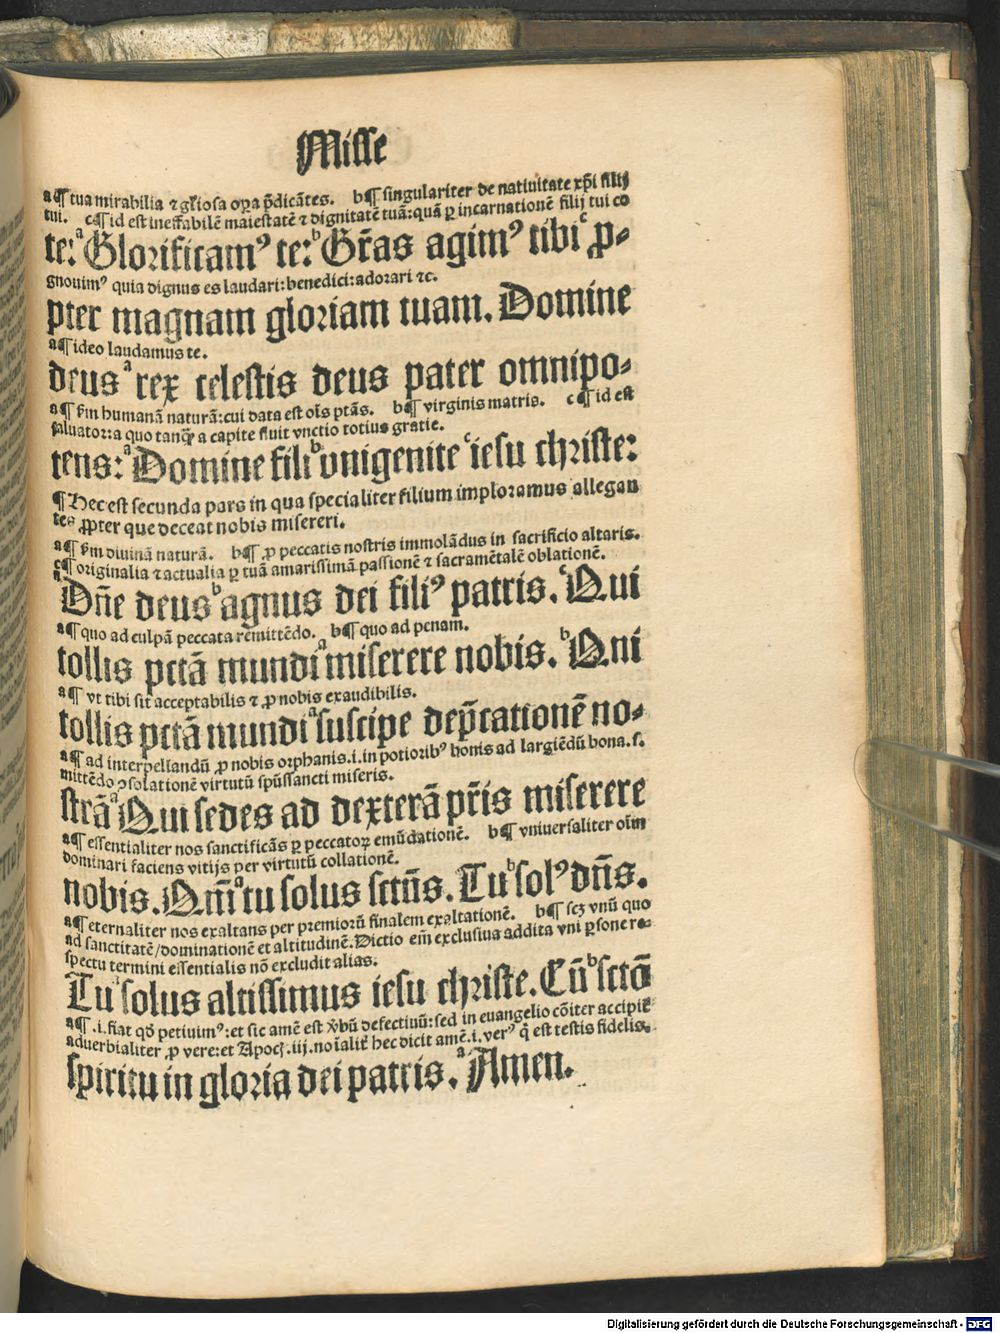 Misse
a¶ tua mirabilia ⁊ gl̃iosa oꝑa p̃dicãtes. b¶ singulariter de natiuitate xp̃i filij
tui. c¶ id est ineffabilẽ maiestatẽ ⁊ dignitatẽ tuã: quã ꝑ incarnationẽ filij tui co
te: ᵃGlorificamꝰ te: ᵇGr̃as agimꝰ tibi ᶜꝓ⸗
gnouimꝰ quia dignus es laudari: benedici: adorari ⁊c.
pter magnam gloriam tuam. Domine
a¶ ideo laudamus te.
deus ᵃrex celestis deus pater omnipo⸗
a¶ fm̃ humanã naturã: cui data est oĩs ptãs. b¶ virginis matris. c¶ id est
saluator: a quo tanꝙ̃ a capite fluit vnctio totius gratie.
tens: ᵃDomine fili ᵇvnigenite ᶜiesu christe:
¶ Hec est secunda pars in qua specialiter filium imploramus allegan
tes ꝓpter que deceat nobis misereri.
a¶ fm̃ diuinã naturã. b¶ ꝓ peccatis nostris immolãdus in sacrificio altaris.
c¶ originalia ⁊ actualia ꝑ tuã amarissimã passionẽ ⁊ sacramẽtalẽ oblationẽ.
ᵃDñe deus ᵇagnus dei filiꝰ patris. ᶜQui
a¶ quo ad culpã peccata remittẽdo. b¶ quo ad penam.
tollis pctã mundi ᵃmiserere nobis. ᵇQui
a¶ vt tibi sit acceptabilis ⁊ ꝓ nobis exaudibilis.
tollis pctã mundi ᵃsuscipe dep̃cationẽ no⸗
a¶ ad interpellandũ ꝓ nobis orphanis .i. in potioribꝰ bonis ad largiẽdũ bona .s.
mittẽdo ꝯsolationẽ virtutũ spũssancti miseris.
strã ᵃQui sedes ad dexterã pr̃is miserere
a¶ essentialiter nos sanctificãs ꝑ peccatoꝝ emũdationẽ. b¶ vniuersaliter oĩm
dominari faciens vitijs per virtutũ collationẽ.
nobis. Qm̃ ᵃtu solus sctũs. Tu ᵇsolꝰ dñs.
a¶ eternaliter nos exaltans per premiorũ finalem exaltationẽ. b¶ scꝫ vnũ quo
ad sanctitatẽ/dominationẽ et altitudinẽ. Dictio em̃ exclusiua addita vni ꝑsone re⸗
spectu termini essentialis nõ excludit alias.
Tu ᵃsolus altissimus iesu christe. Cũ ᵇsctõ
a¶ .i. fiat qd̃ petiuimꝰ: et sic amẽ est v̾bũ defectiuũ: sed in euangelio cõiter accipit̃
aduerbialiter ꝓ vere: et Apoc. iij. noĩalit̃ hec dicit amẽ .i. verꝰ q̃ est testis fidelis.
spiritu in gloria dei patris. ᵃAmen.
Digitalisierung gefördert durch die Deutsche Forschungsgemeinschaft - DFG